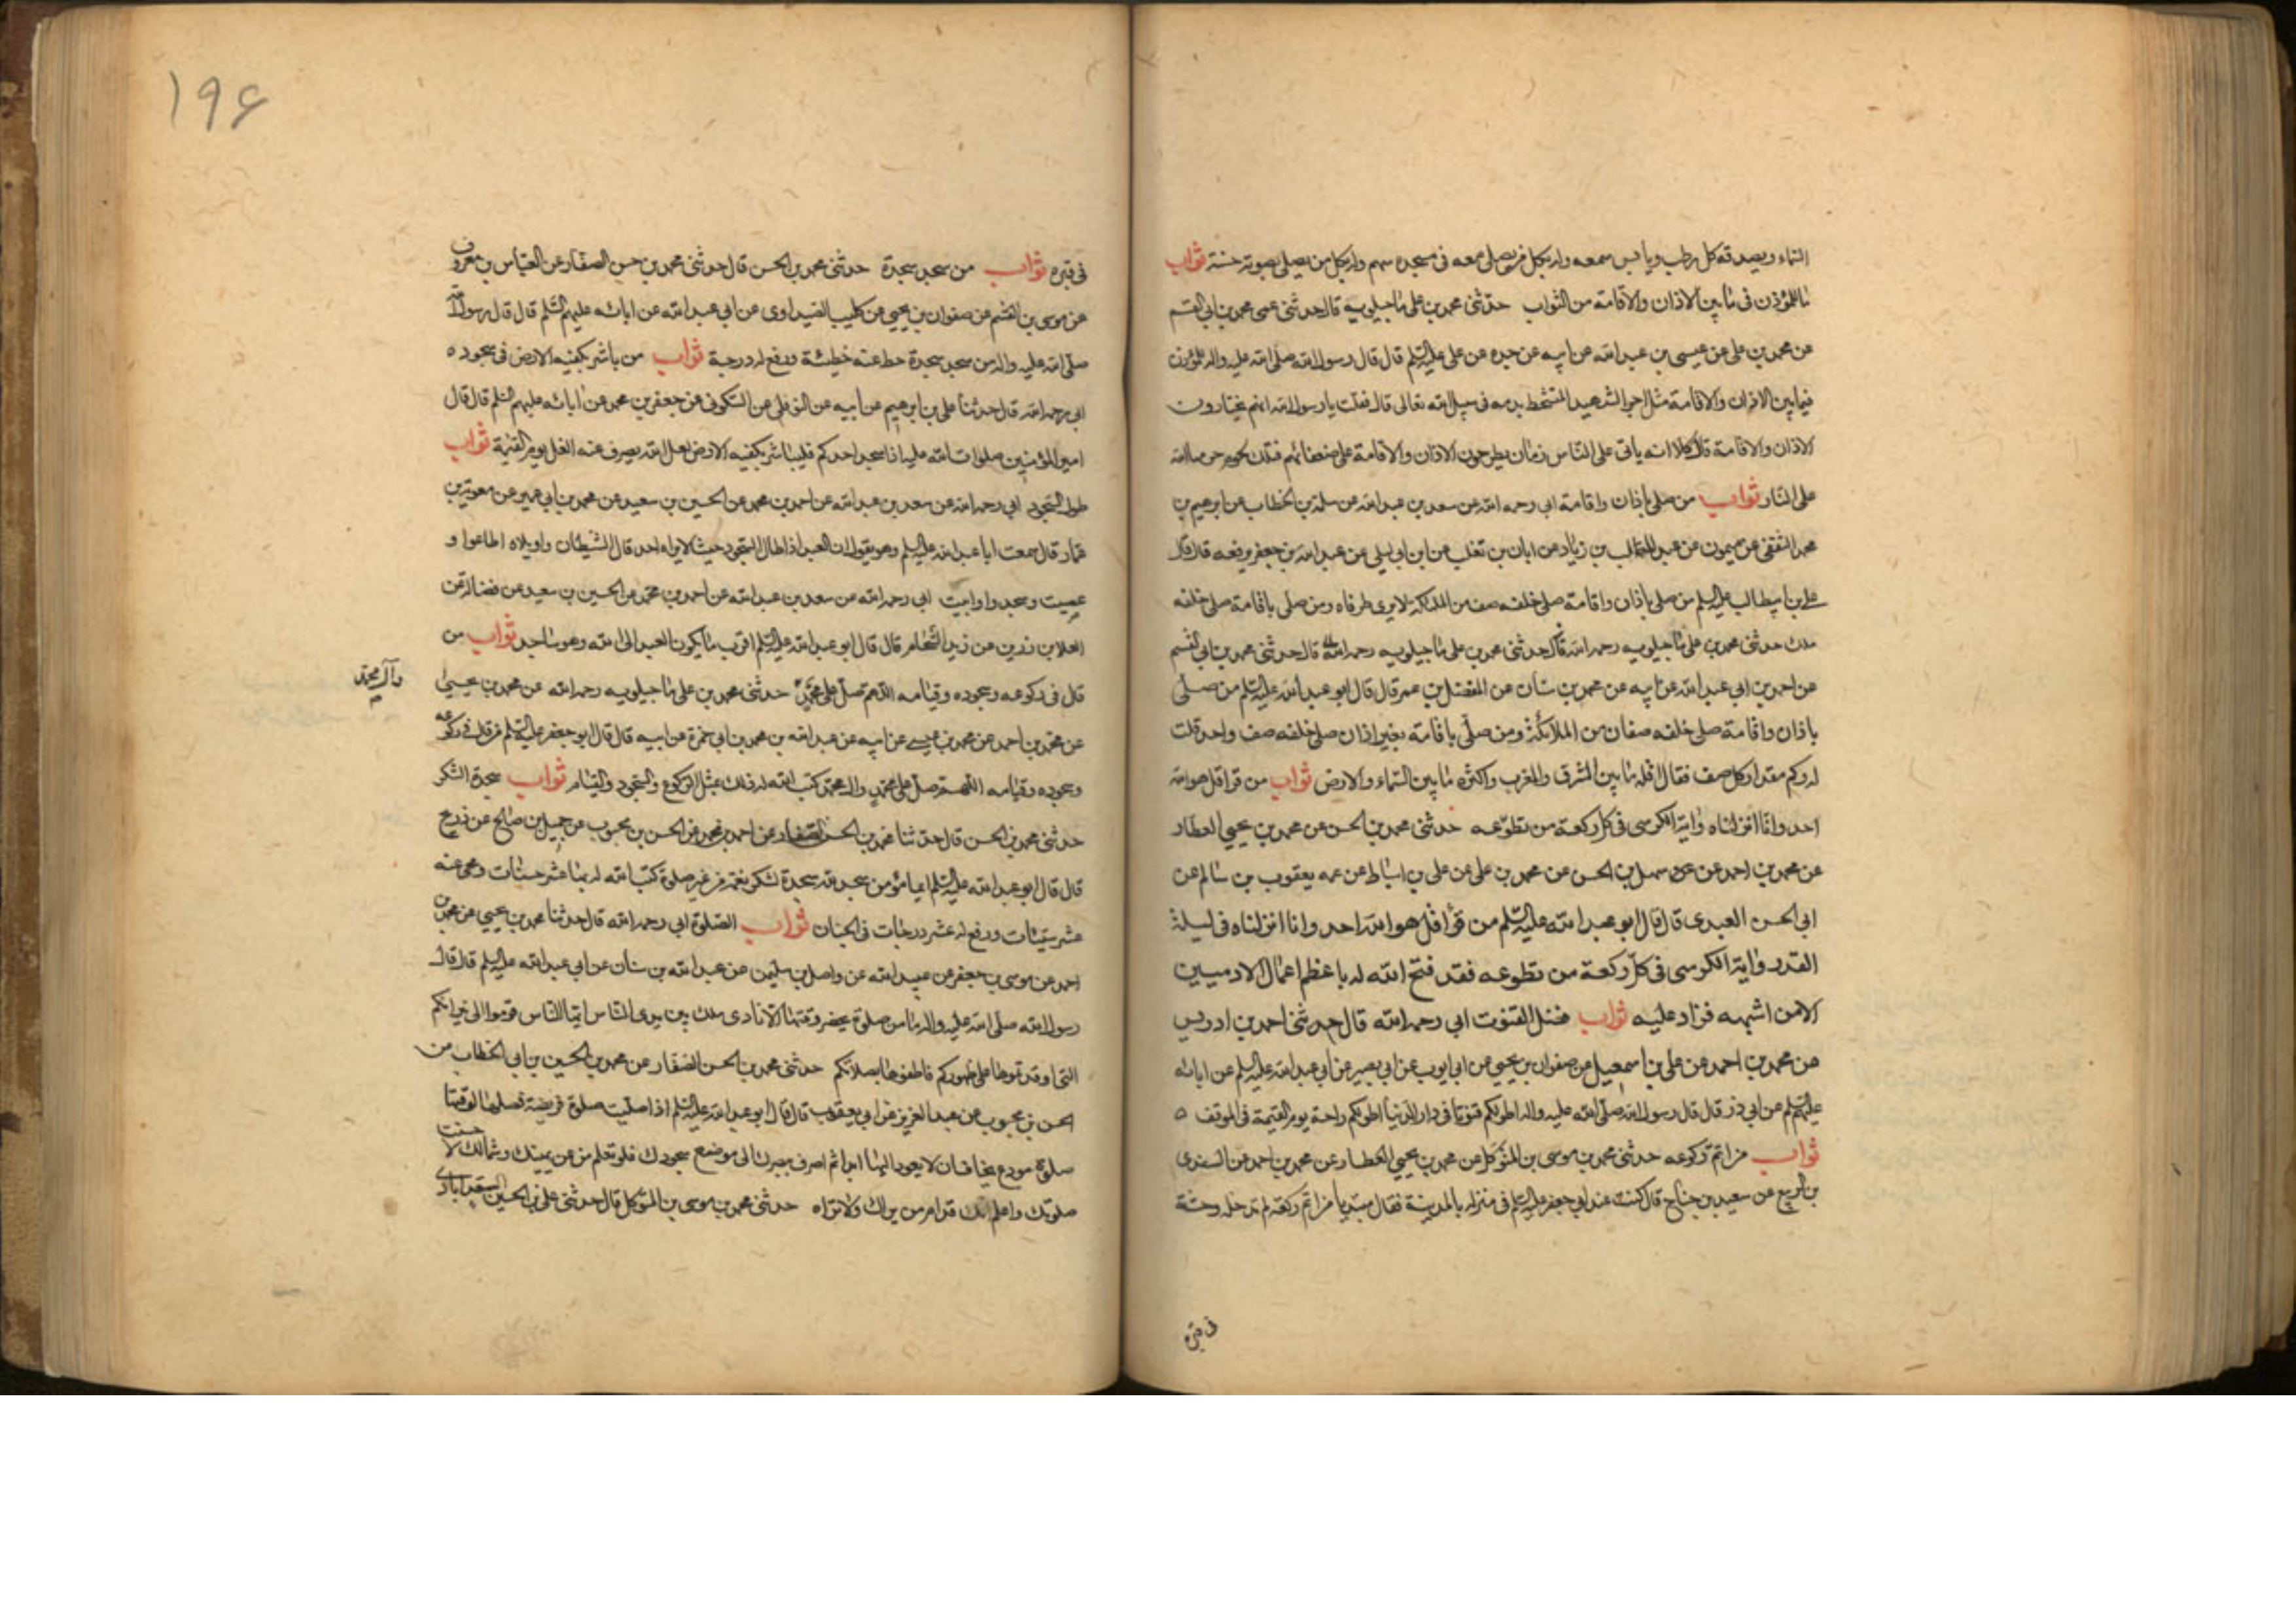 السماء ويصدقه كل رطب ويابس سمعه وله بكل من يصلى معه فى مسجده سهم وله بكل من يصلى بصوته حسنة ثواب
ما للمؤذن فى ما بين الاذان والاقامة من الثواب حدثنى محمد بن على ماجيلويه قال حدثنى عمى محمد بن ابى القسم
عن محمد بن على عن عيسى بن عبد الله عن ابيه عن جده عن على عليه السلم قال قال رسول الله صلى الله عليه واله للمؤذن
فيما بين الاذان والاقامة مثل اجر الشهيد المتشحط بدمه فى سبيل الله تعالى قال فقلت يا رسول الله انهم يختارون
الاذان والاقامة قال كلا انه ياتى على الناس زمان يطرحون الاذان والاقامة على ضعفائهم فتلك لحوم حرمها الله
على النار ثواب من صلى باذان واقامة ابى رحمه الله عن سعد بن عبد الله عن سلمة بن الخطاب عن ابرهيم بن
محمد الثقفى عن ميمون عن عبد المطلب بن زياد عن ابان بن تغلب عن ابن ابى ليلى عن عبد الله بن جعفر يرفعه قال قال
على بن ابيطالب عليه السلم من صلى باذان واقامة صلى خلفه صف من الملائكة لا يرى طرفاه ومن صلى باقامة صلى خلفه
ملك حدثنى محمد بن على ماجيلويه رحمه الله قال حدثنى محمد بن على ماجيلويه رحمه الله قال حدثنى محمد بن ابى القسم
عن احمد بن ابى عبد الله عن ابيه عن محمد بن سنان عن المفضل بن عمر قال قال ابو عبد الله عليه السلم من صلى
باذان واقامة صلى خلفه صفان من الملائكة ومن صلى باقامة بغير اذان صلى خلفه صف واحد قلت
له وكم مقدار كل صف فقال اقله ما بين المشرق والمغرب واكثره ما بين السماء والارض ثواب من قرا قل هو الله
احد وانا انزلناه واية الكرسى فى كل ركعة من تطوعه حدثنى محمد بن الحسن عن محمد بن يحيى العطار
عن محمد بن احمد عن سهل بن الحسن عن محمد بن على عن على بن اسباط عن عمه يعقوب بن سالم عن
ابى الحسن العبدى قال قال ابو عبد الله عليه السلم من قرأ قل هو الله احد وانا انزلناه فى ليلة
القدر واية الكرسى فى كل ركعة من تطوعه فقد فتح الله له باعظم اعمال الادميين
الا من اشبهه فزاد عليه ثواب فضل القنوت ابى رحمه الله قال حدثنى احمد بن ادريس
عن محمد بن احمد عن على بن اسمعيل عن صفوان بن يحيى عن ابى ايوب عن ابى بصير عن ابى عبد الله عليه السلم عن اباىه
عليهم السلم عن ابى ذر قال قال رسول الله صلى الله عليه واله اطولكم قنوتا فى دار الدنيا اطولكم راحة يوم القيمة فى الموقف ه
ثواب من اتم ركوعه حدثنى محمد بن موسى بن المتوكل عن محمد بن يحيى العطار عن محمد بن احمد عن السندى
بن الربيع عن سعيد بن جناح قال كنت عند ابى جعفر عليه السلم فى منزله بالمدينة فقال مبتديا من اتم ركعته لم تدخله وحشة
فى قبره
۱۹۶
فى قبره ثواب من سجد سجدة حدثنى محمد بن الحسن قال حدثنى محمد بن حسن الصفار عن العباس بن معروف
عن موسى بن القسم عن صفوان بن يحيى عن كليب الصيداوى عن ابى عبد الله عن اباىه عليهم السلم قال قال رسول الله
صلى الله عليه واله من سجد سجدة حط عنه خطيئة ورفع له درجة ثواب من باشر بكفيه الارض فى سجوده
ابى رحمه الله قال حدثنا على بن ابرهيم عن ابيه عن النوفلى عن السكونى عن جعفر بن محمد عن اباىه عليهم السلم قال قال
امير المؤمنين صلوات الله عليه اذا سجد احدكم فليباشر بكفيه الارض لعل الله يصرف عنه الغل يوم القيمة ثواب
طول السجود ابى رحمه الله عن سعد بن عبد الله عن احمد بن محمد عن الحسين بن سعيد عن محمد بن ابى عمير عن معوية بن
عمار قال سمعت ابا عبد الله عليه السلم وهو يقول ان العبد اذا طال السجود حيث لا يراه احد قال الشيطان واويلاه اطاعوا و
عصيت وسجدوا وابيت ابى رحمه الله عن سعد بن عبد الله عن احمد بن محمد عن الحسين بن سعيد عن فضالة عن
العلا بن رزين عن زيد الشحام قال قال ابو عبد الله عليه السلم اقرب ما يكون العبد الى الله وهو ساجد ثواب من
قال فى ركوعه وسجوده وقيامه اللهم صل على محمد حدثنى محمد بن على ماجيلويه رحمه الله عن محمد بن يحيى
وآل محمد
عن محمد بن احمد عن محمد بن عيسى عن ابيه عن عبد الله بن محمد بن ابى حمزة عن ابيه قال قال ابو جعفر عليه السلم من قال فى ركوعه
وسجوده وقيامه اللهم صل على محمد وال محمد كتب الله له ذلك بمثل الركوع والسجود والقيام ثواب سجدة الشكر
حدثنى محمد بن الحسن قال حدثنا محمد بن الحسن الصفار عن احمد بن محمد عن الحسن بن محبوب عن جميل بن صالح عن ذريح
قال قال ابو عبد الله عليه السلم ايما مؤمن سجد لله سجدة لشكر نعمة من غير صلوة كتب الله له بها عشر حسنات ومحى عنه
عشر سيئات ورفع له عشر درجات فى الجنان ثواب الصلوة ابى رحمه الله قال حدثنا محمد بن يحيى عن محمد بن
احمد عن موسى بن جعفر عن عبيد الله عن واصل بن سليمن عن عبد الله بن سنان عن ابى عبد الله عليه السلم قال قال
رسول الله صلى الله عليه واله ما من صلوة يحضر وقتها الا نادى ملك بين يدى الناس ايها الناس قوموا الى نيرانكم
التى اوقدتموها على ظهوركم فاطفوها بصلاتكم حدثنى محمد بن الحسن الصفار عن محمد بن الحسين بن ابى الخطاب عن
الحسن بن محبوب عن عبد العزيز عن ابى يعقوب قال قال ابو عبد الله عليه السلم اذا صليت صلوة فريضة فصلها لوقتها
صلوة مودع يخاف ان لا يعود اليها ابدا ثم اصرف ببصرك الى موضع سجودك فلو تعلم من عن يمينك وشمالك لاحسنت
صلوتك واعلم انك قدام من يراك ولا تراه حدثنى محمد بن موسى بن المتوكل قال حدثنى على بن الحسين السعدابادى